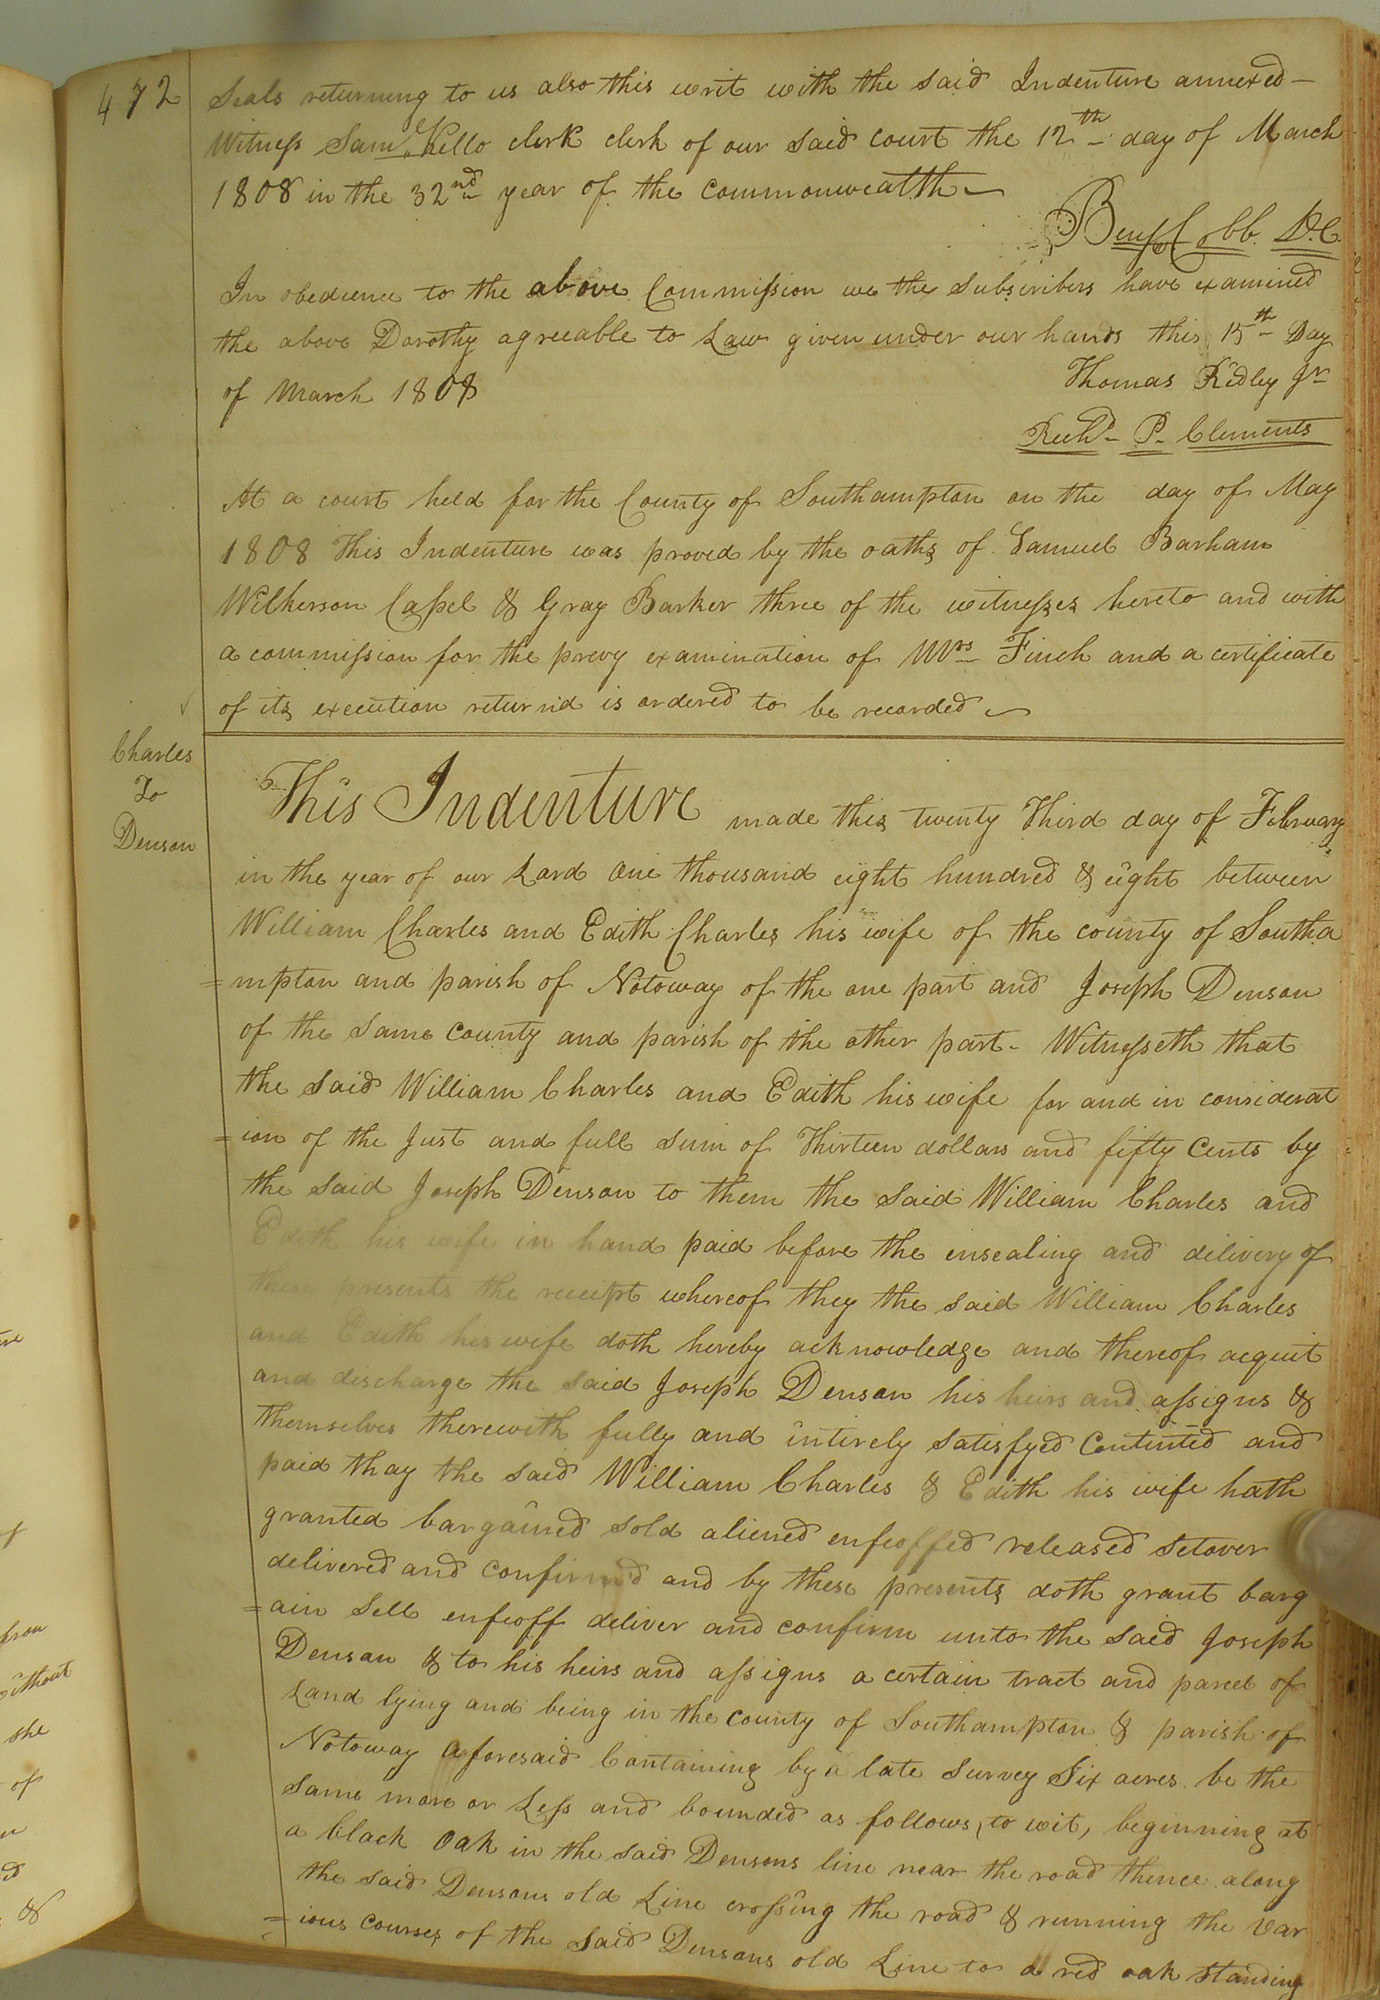 472
Seals returning to us also this writ with the said Indenture annexed —
Witness Saml. Kello clerk clerk of our said court the 12th day of March
1808 in the 32nd year of the commonwealth —
Benj Cobb D.C.
In obedience to the above Commission we the Subscribers have examined
the above Dorothy agreeable to Law given under our hands this 15th Day
of March 1808
Thomas Ridley Jr
Richd. P. Clements
At a court held for the County of Southampton on the day of May
1808 This Indenture was proved by the oaths of Samuel Barham
Wilkerson Capel & Gray Barker three of the witnesses hereto and with
a commission for the prevy examination of Mrs Finch and a certificate
of its execution return'd is ordered to be recorded —
Charles
To
Denson
This Indenture made this twenty Third day of February
in the year of our Lord One thousand eight hundred & eight between
William Charles and Edith Charles his wife of the county of Southa
=mpton and parish of Notoway of the one part and Joseph Denson
of the same county and parish of the other part - Witnesseth that
the said William Charles and Edith his wife for and in considerat
=ion of the Just and full sum of Thirteen dollars and fifty Cents by
the said Joseph Denson to them the said William Charles and
Edith his wife in hand paid before the ensealing and dilivery of
these presents the receipt whereof they the said William Charles
and Edith his wife doth hereby acknowledge and thereof acquit
and discharge the said Joseph Denson his heirs and assigns &
themselves therewith fully and intirely satisfyed Contented and
paid thay the said William Charles & Edith his wife hath
granted bargained sold aliened enfeoffed released setover
delivered and confirm'd and by these presents doth grant barg
=ain Sell enfeoff deliver and confirm unto the said Joseph
Denson & to his heirs and assigns a certain tract and parcel of
Land lying and being in the county of Southampton & parish of
Notoway aforesaid Containing by a late survey Six acres be the
same more or Less and bounded as follows, to wit, beginning at
a black Oak in the said Densons line near the road thence along
the said Densons old Line crossing the road & running the var
=ious courses of the said Densons old Line to a red oak standing